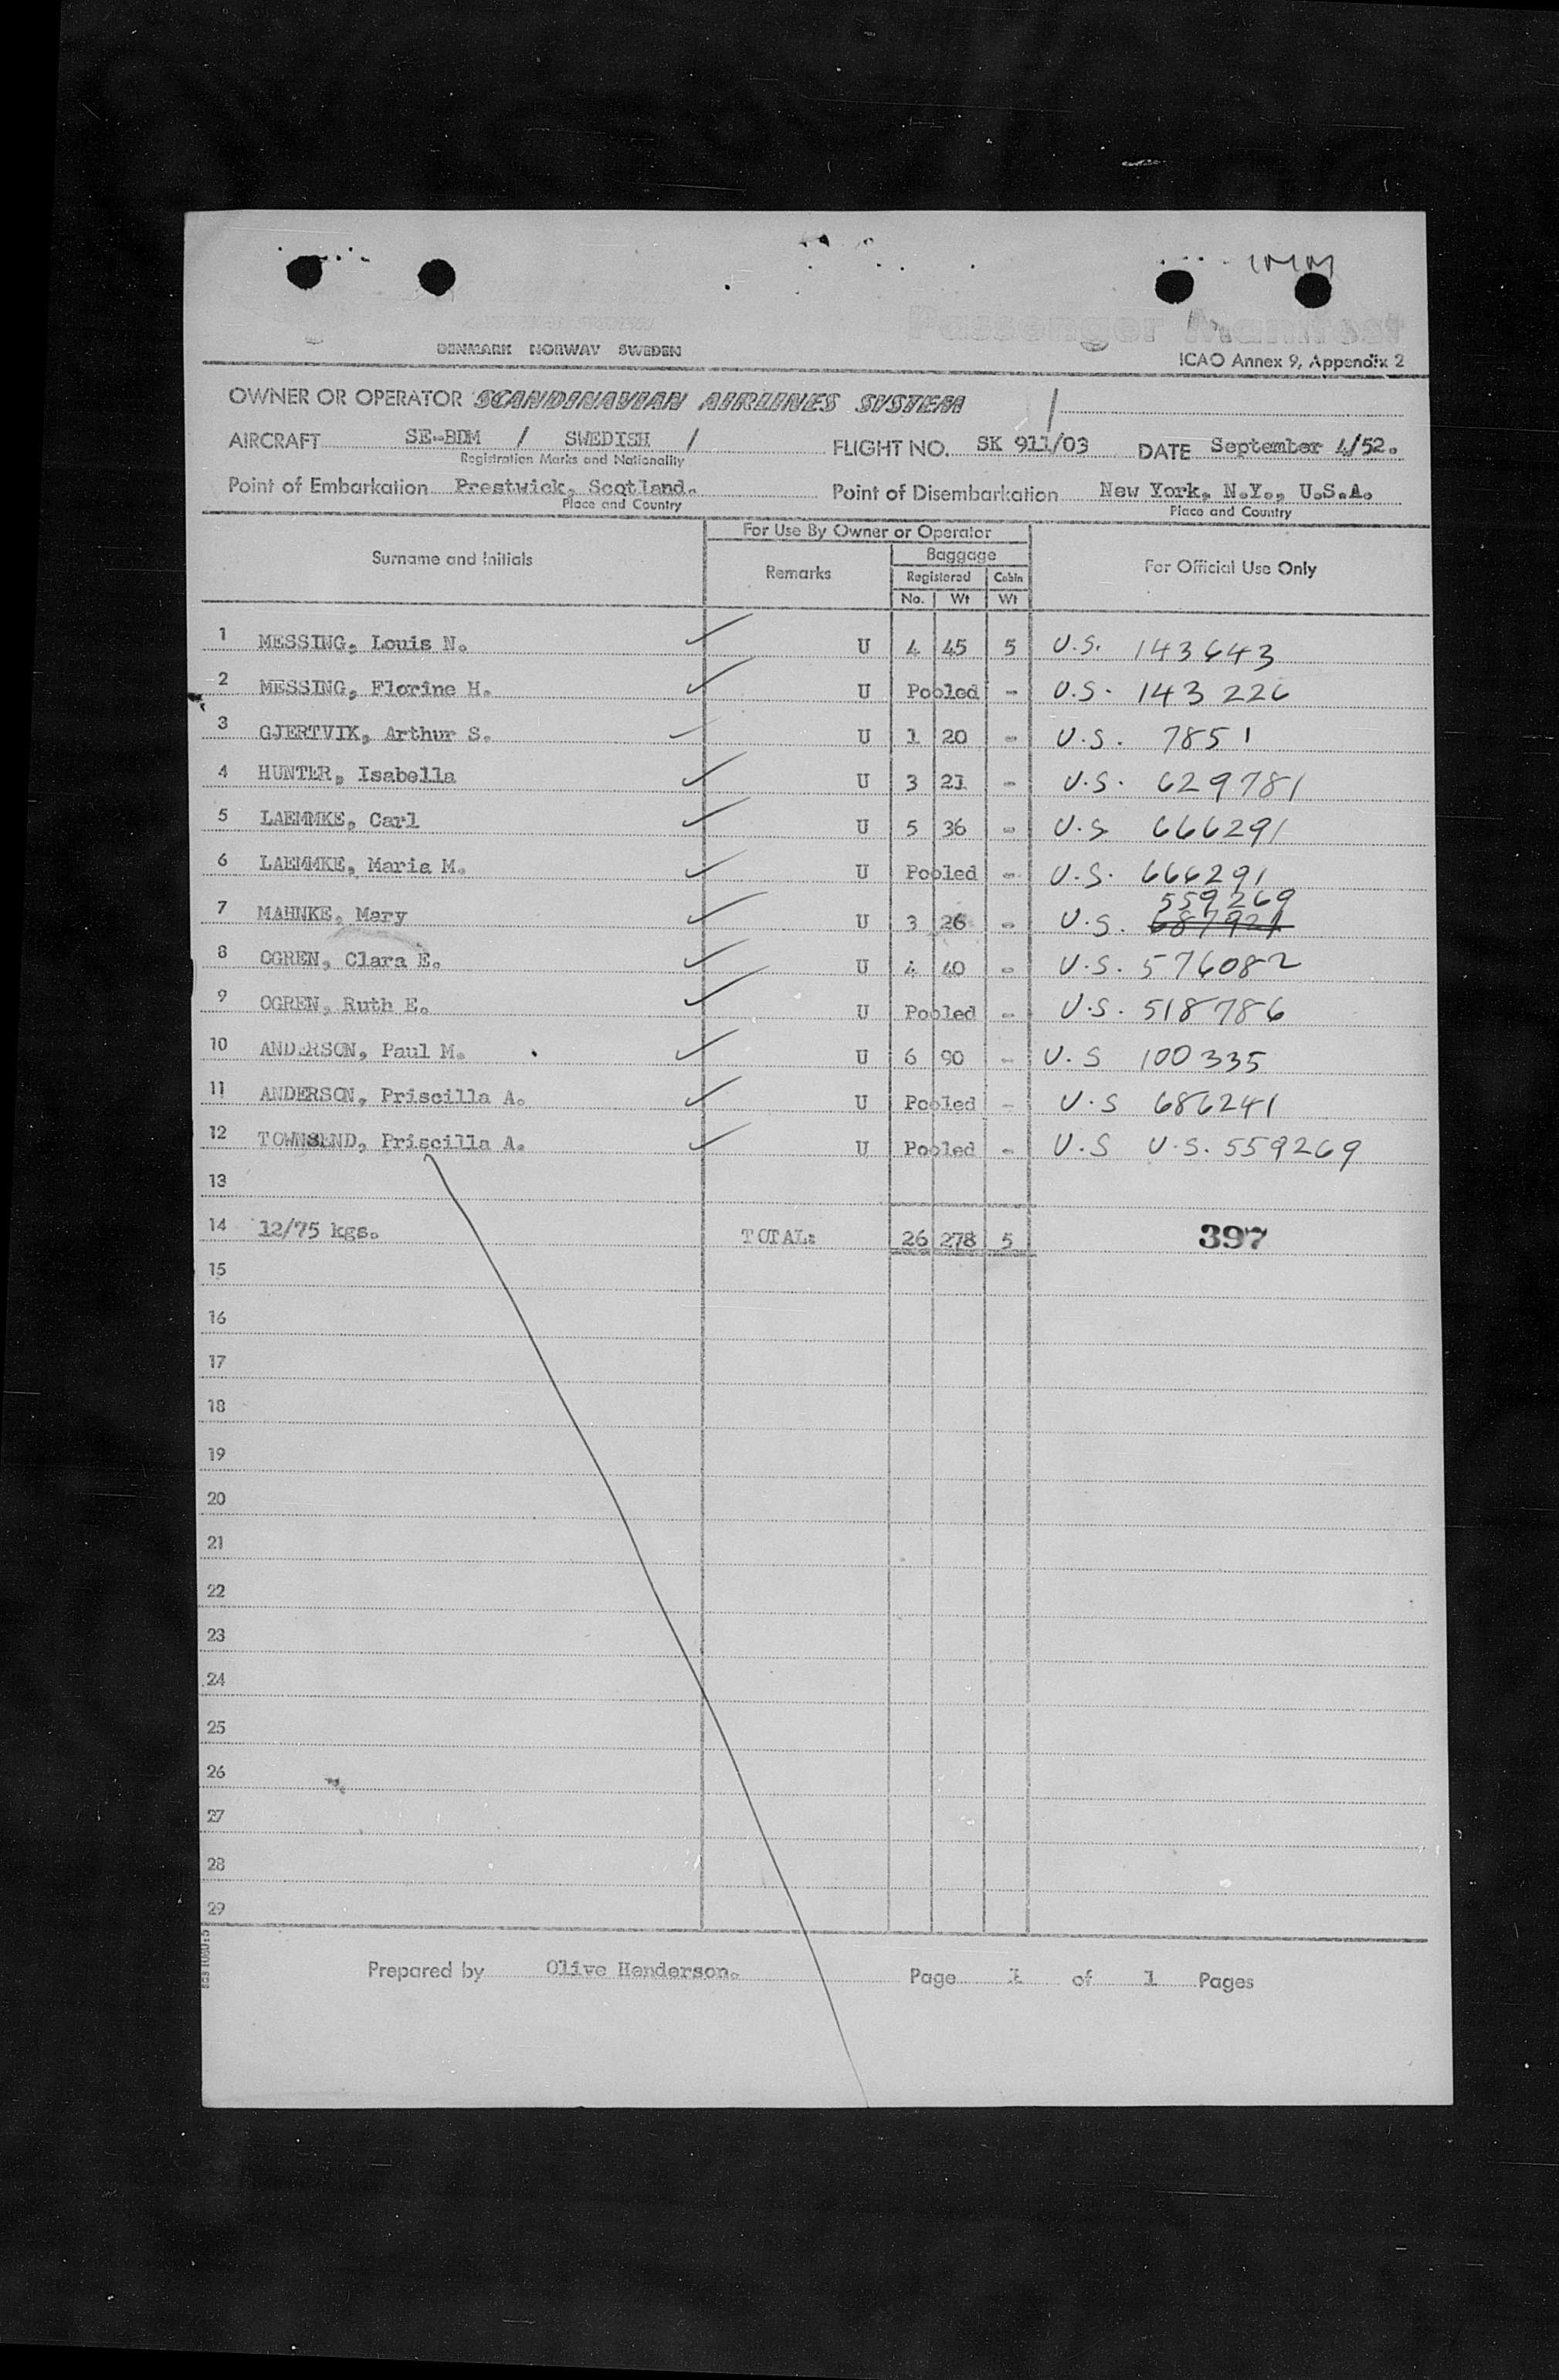 DENMARK NORWAY SWEDEN
Passenger Manifest
ICAO Annex 9, Appendix 2
OWNER OR OPERATOR SCANDINAVIAN AIRLINES SYSTEM
AIRCRAFT SE-BDM / SWEDISH / FLIGHT NO. SK 911/03 DATE September 4/52.
Registration Marks and Nationality
Point of Embarkation Prestwick, Scotland. Point of Disembarkation New York, N.Y., U.S.A.
Place and Country Place and Country
For Use By Owner or Operator
Surname and Initials Remarks Baggage For Official Use Only
Registered Cabin
No. Wt Wt
1 MESSING, Louis N. U 4 45 5 U.S. 143643
2 MESSING, Florine H. U Pooled - U.S. 143226
3 GJERTVIK, Arthur S. U 1 20 - U.S. 7851
4 HUNTER, Isabella U 3 21 - U.S. 629781
5 LAEMMKE, Carl U 5 36 - U.S. 666291
6 LAEMMKE, Maria M. U Pooled - U.S. 666291
559269
7 MAHNKE, Mary U 3 26 - U.S. 687921
8 OGREN, Clara E. U 4 40 - U.S. 576082
9 OGREN, Ruth E. U Pooled - U.S. 518786
10 ANDERSON, Paul M. U 6 90 - U.S 100335
11 ANDERSON, Priscilla A. U Pooled - U.S 686241
12 TOWNSEND, Priscilla A. U Pooled - U.S U.S. 559269
13
14 12/75 kgs. TOTAL: 26 278 5 397
15
16
17
18
19
20
21
22
23
24
25
26
27
28
29
Prepared by Olive Henderson. Page 1 of 1 Pages